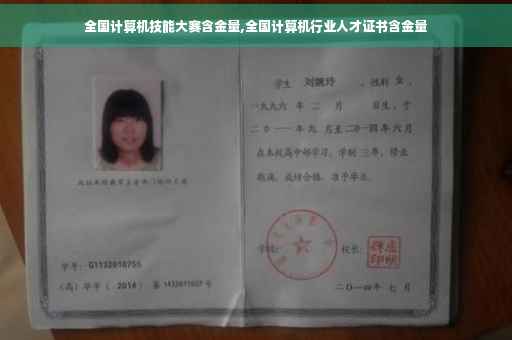 全国计算机技能大赛含金量,全国计算机行业人才证书含金量
学生 刘婉玲 ,性别 女 ,
一九九六 年 二 月 日生,于
二〇一一 年 九 月至 二〇一四 年 六 月
在本校高中部学习,学制 三 年,修业
期满,成绩合格,准予毕业。
学校: 校长:
二〇一四 年 七 月
学号: G1132010755
(高)毕字( 2014 )第 1432011027 号